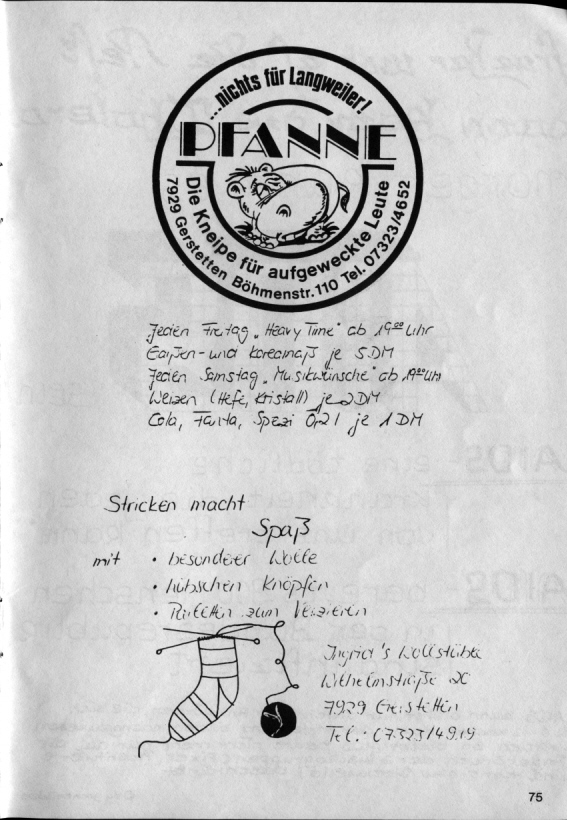 ...nichts für Langweiler!
PFANNE
Die Kneipe für aufgeweckte Leute
7929 Gerstetten Böhmenstr.110 Tel. 07323/4652
Jeden Freitag „Heavy Time" ab 19⁰⁰ Uhr
Goißen- und Koreamaß je 5.DM
Jeden Samstag „Musikwünsche" ab 19⁰⁰ Uhr
Weizen (Hefe, Kristall) je 2 DM
Cola, Fanta, Spezi 0,2 l je 1 DM
Stricken macht
Spaß
mit • besonderer Wolle
• hübschen Knöpfen
• Pailetten zum Verzieren
Ingrid's Wollstüble
Wilhelmstraße 20
7929 Gerstetten
Tel.: 07323/4919
75